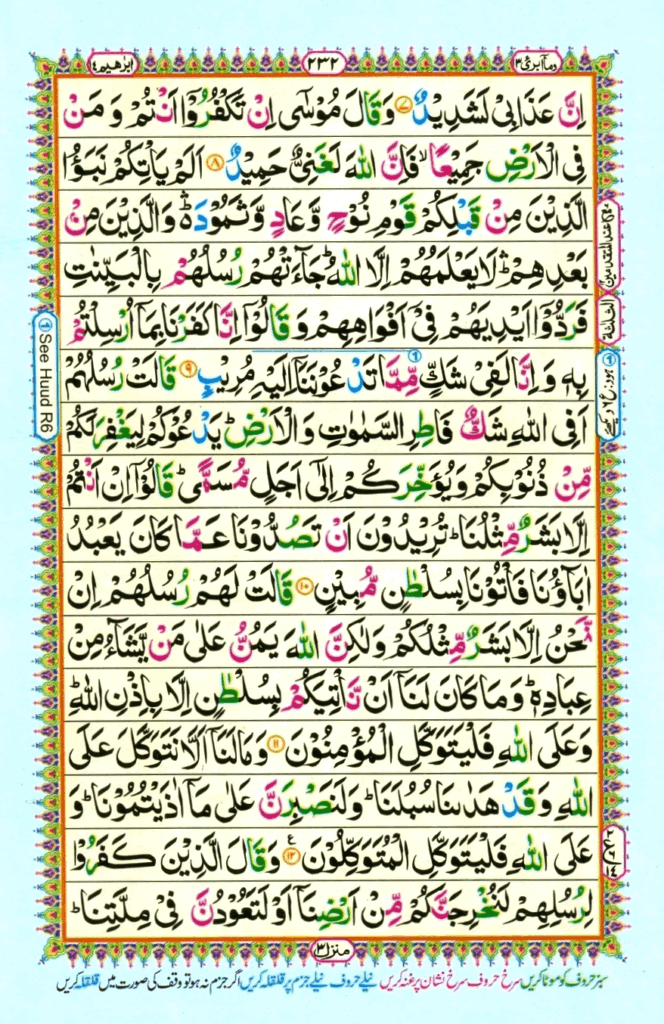 وما ابرئ ١٣
٢٣٢
ابرٰهيم ١٤
اِنَّ عَذَابِىْ لَشَدِيْدٌ ۝٧ وَقَالَ مُوْسٰٓى اِنْ تَكْفُرُوْٓا اَنْتُمْ وَ مَنْ
فِى الْاَرْضِ جَمِيْعًا ۙ فَاِنَّ اللّٰهَ لَغَنِىٌّ حَمِيْدٌ ۝٨ اَلَمْ يَاْتِكُمْ نَبَؤُا
الَّذِيْنَ مِنْ قَبْلِكُمْ قَوْمِ نُوْحٍ وَّعَادٍ وَّثَمُوْدَ ؕۛ وَالَّذِيْنَ مِنْۢ
بَعْدِهِمْ ؕۛ لَا يَعْلَمُهُمْ اِلَّا اللّٰهُ ؕ جَآءَتْهُمْ رُسُلُهُمْ بِالْبَيِّنٰتِ
فَرَدُّوْٓا اَيْدِيَهُمْ فِىْٓ اَفْوَاهِهِمْ وَ قَالُوْٓا اِنَّا كَفَرْنَا بِمَآ اُرْسِلْتُمْ
بِهٖ وَ اِنَّا لَفِىْ شَكٍّ مِّمَّا تَدْعُوْنَنَآ اِلَيْهِ مُرِيْبٍ ۝٩ قَالَتْ رُسُلُهُمْ
اَفِى اللّٰهِ شَكٌّ فَاطِرِ السَّمٰوٰتِ وَ الْاَرْضِ ؕ يَدْعُوْكُمْ لِيَغْفِرَ لَكُمْ
مِّنْ ذُنُوْبِكُمْ وَ يُؤَخِّرَكُمْ اِلٰٓى اَجَلٍ مُّسَمًّى ؕ قَالُوْٓا اِنْ اَنْتُمْ
اِلَّا بَشَرٌ مِّثْلُنَا ؕ تُرِيْدُوْنَ اَنْ تَصُدُّوْنَا عَمَّا كَانَ يَعْبُدُ
اٰبَآؤُنَا فَاْتُوْنَا بِسُلْطٰنٍ مُّبِيْنٍ ۝١٠ قَالَتْ لَهُمْ رُسُلُهُمْ اِنْ
نَّحْنُ اِلَّا بَشَرٌ مِّثْلُكُمْ وَلٰكِنَّ اللّٰهَ يَمُنُّ عَلٰى مَنْ يَّشَآءُ مِنْ
عِبَادِهٖ ؕ وَمَا كَانَ لَنَآ اَنْ نَّاْتِيَكُمْ بِسُلْطٰنٍ اِلَّا بِاِذْنِ اللّٰهِ ؕ
وَعَلَى اللّٰهِ فَلْيَتَوَكَّلِ الْمُؤْمِنُوْنَ ۝١١ وَمَا لَنَآ اَلَّا نَتَوَكَّلَ عَلَى
اللّٰهِ وَ قَدْ هَدٰىنَا سُبُلَنَا ؕ وَلَنَصْبِرَنَّ عَلٰى مَآ اٰذَيْتُمُوْنَا ؕ وَ
عَلَى اللّٰهِ فَلْيَتَوَكَّلِ الْمُتَوَكِّلُوْنَ ۝١٢ وَقَالَ الَّذِيْنَ كَفَرُوْا
لِرُسُلِهِمْ لَنُخْرِجَنَّكُمْ مِّنْ اَرْضِنَآ اَوْ لَتَعُوْدُنَّ فِىْ مِلَّتِنَا ؕ
① See Huud R6
منزل ٣
سبز حروف کو موٹا کریں سرخ حروف سرخ نشان پر غنہ کریں نیلے حروف نیلے جزم پر قلقلہ کریں اگر جزم نہ ہو تو وقف کی صورت میں قلقلہ کریں